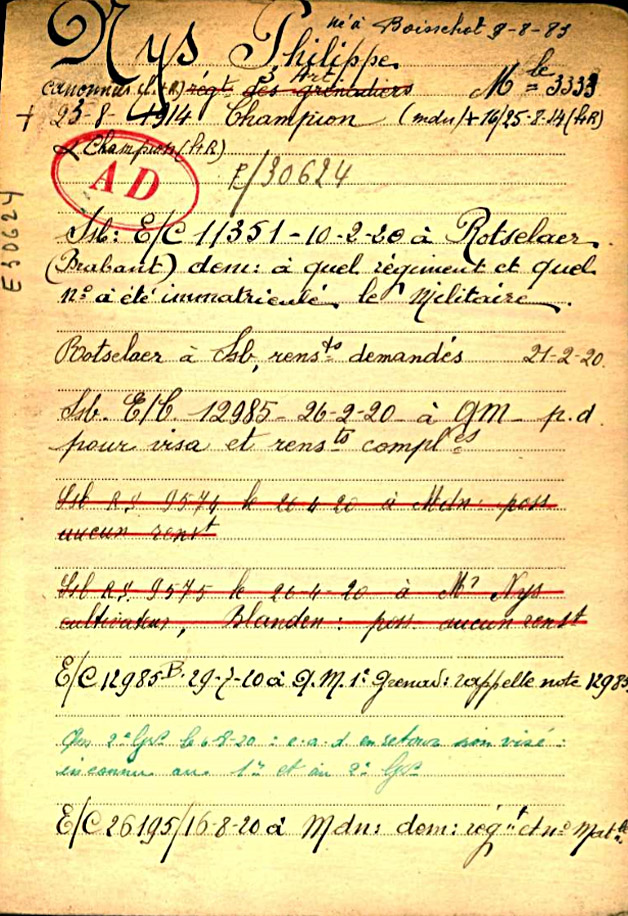 né à Boisschot 9-8-83
Nys Philippe
3 Art
canonnier (S.HR) régt des grenadiers Mle = 3333
+ 23-8-1914 Champion (mdn/+ 16/25-8-14 (HR)
à Champion (HR)
AD
E/30624
E30624
Ssb: E/C 11351-10-2-20 à Rotselaer
(Brabant) dem: à quel régiment et quel
n° à été immatriculé le Militaire.
Rotselaer à Ssb, rensts demandés 21-2-20.
Ssb. E/C. 12985- 26-2-20 à QM- p.d.
pour visa et rensts complts
Ssb R.S. 9574 le 26-4-20 à Mdn: poss
aucun renst
Ssb R.S. 9575 le 26-4-20 à Mr Nys
cultivateur, Blanden: poss. aucun renst
E/C 12985 B. 29-7-20 à Q.M. 1r Grenad: rappelle note 12985
2e le 6-8-20 : e.a.d en retour non visé :
inconnu au 1er et au 2e
E/C 26195/16-8-20 à Mdn: dem: régt et n° Matle